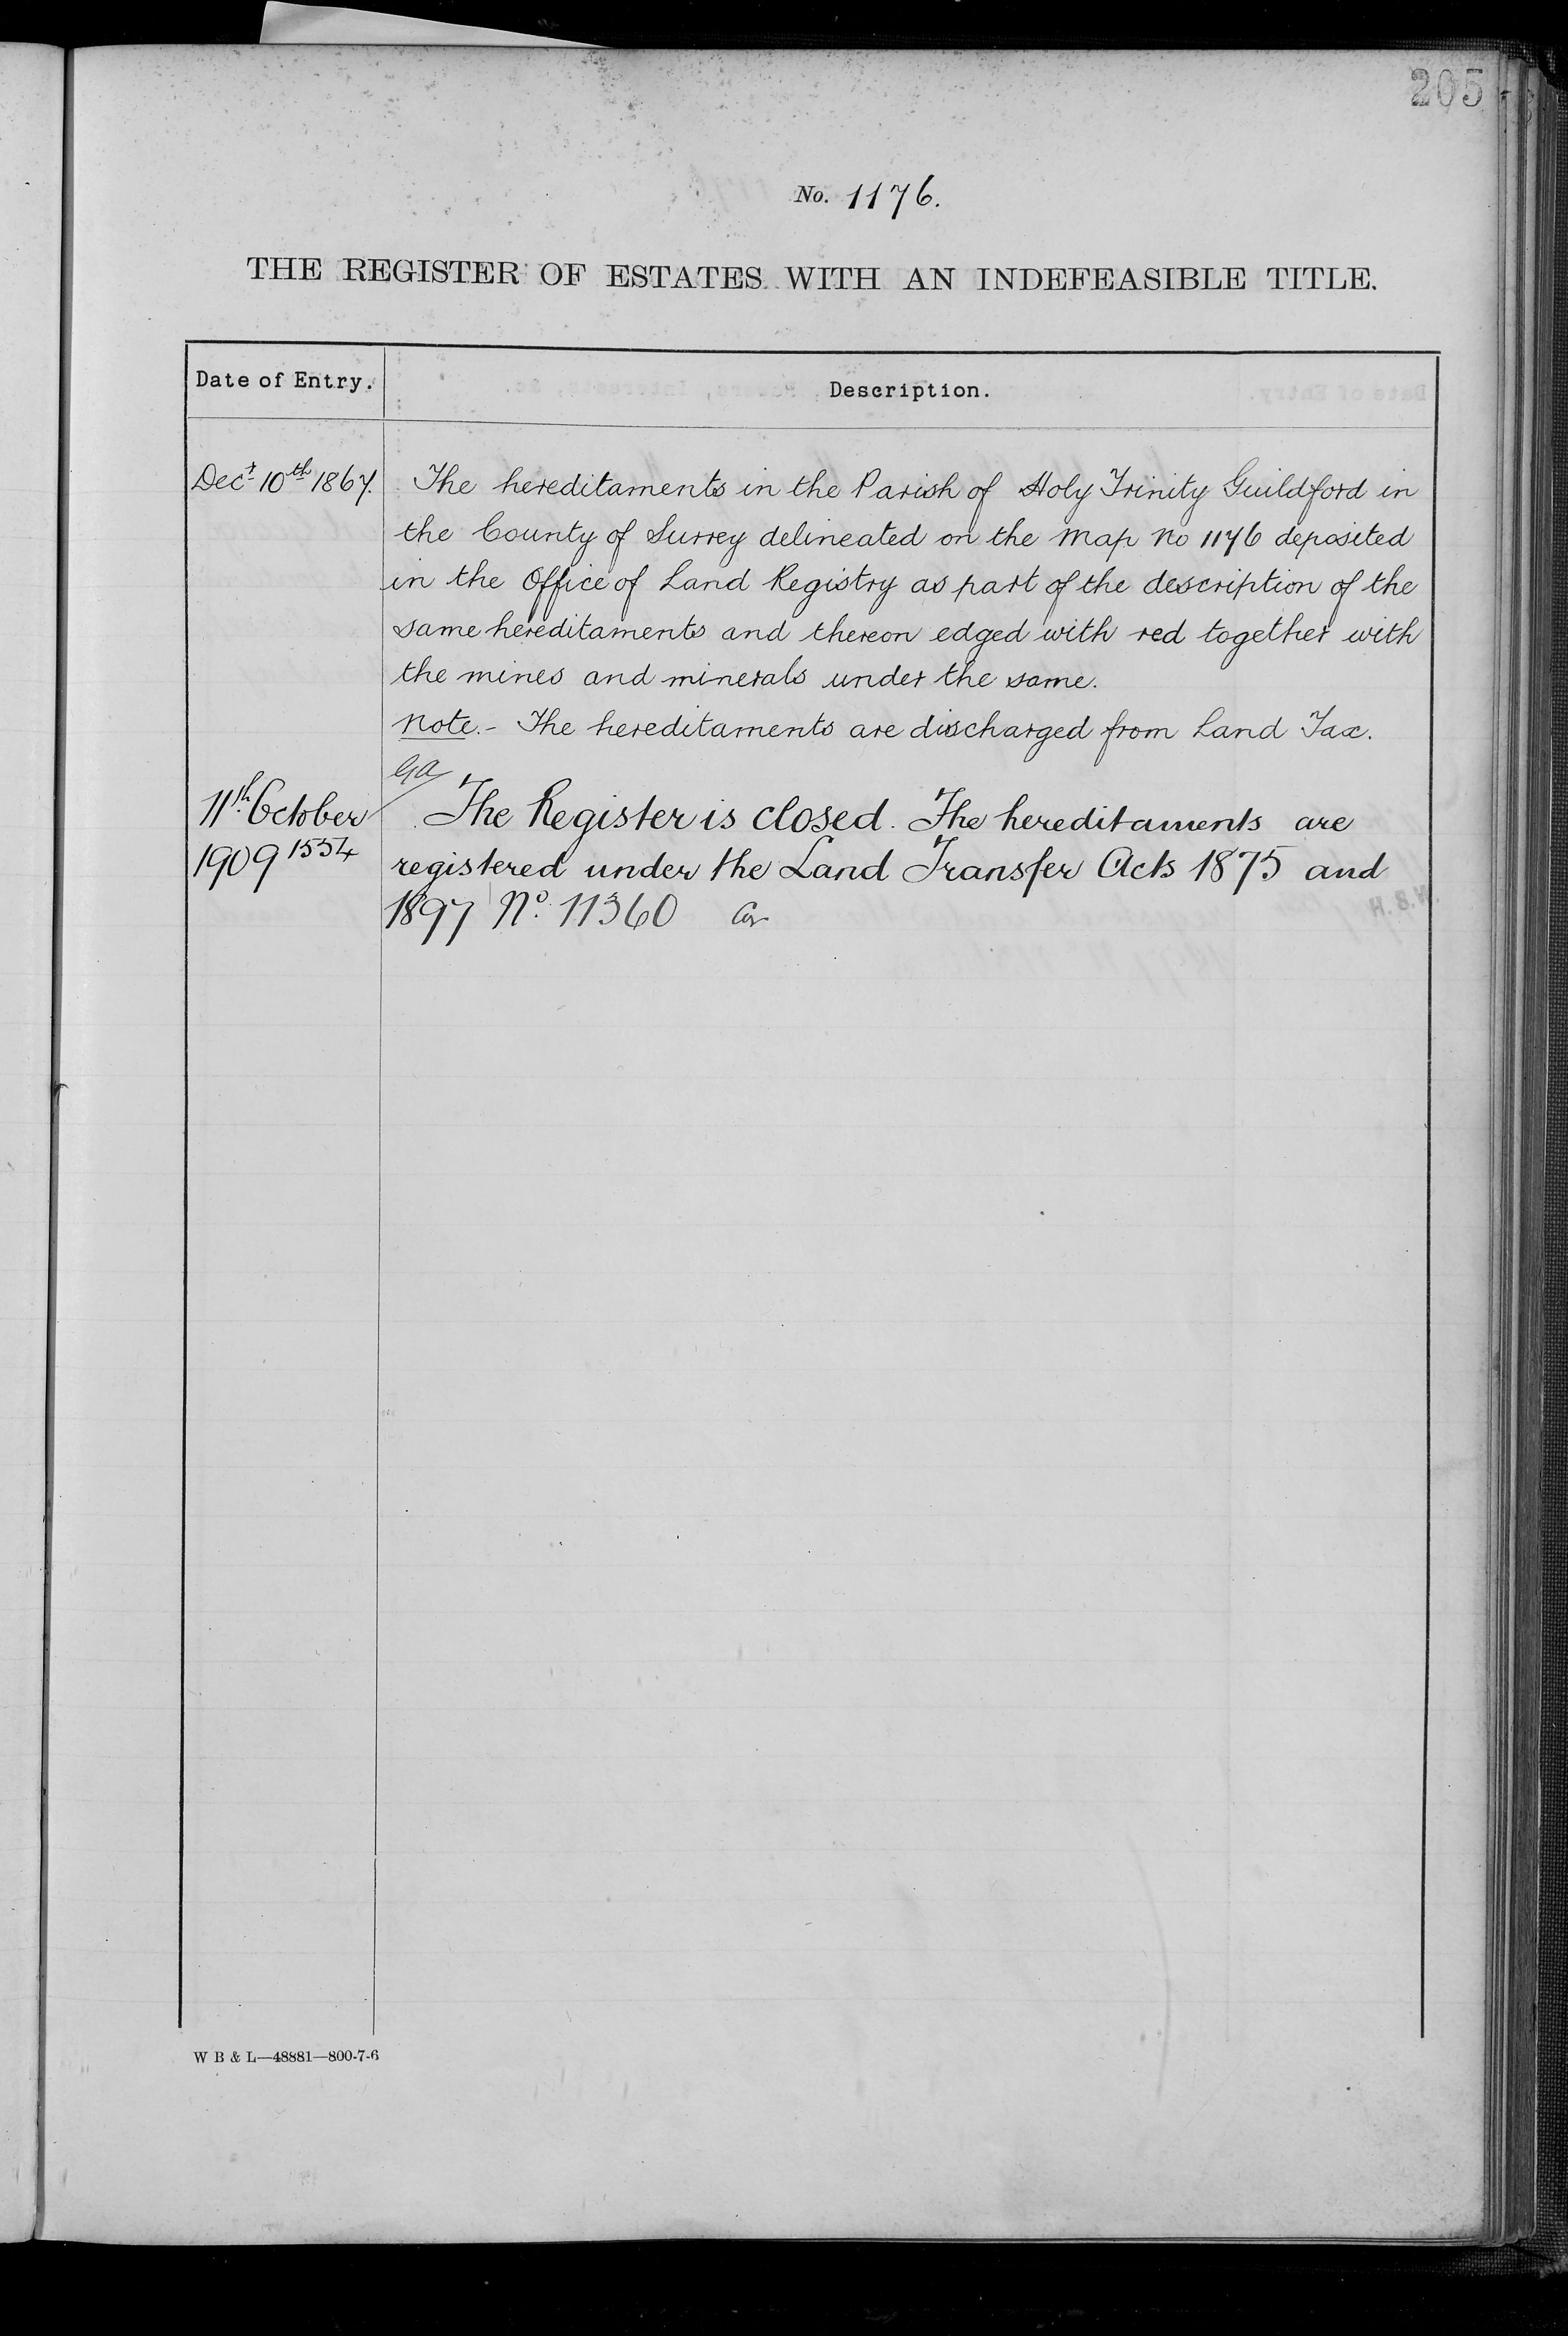 205
No. 1176.
THE REGISTER OF ESTATES WITH AN INDEFEASIBLE TITLE.
Date of Entry.
Description.
Decr 10th 1867.
The hereditaments in the Parish of Holy Trinity Guildford in
the County of Surrey delineated on the Map No 1176 deposited
in the Office of Land Registry as part of the description of the
same hereditaments and thereon edged with red together with
the mines and minerals under the same.
Note.- The hereditaments are discharged from Land Tax.
GA
11th October
1909 1554
The Register is closed. The hereditaments are
registered under the Land Transfer Acts 1875 and
1897 No. 11360
W B & L—48881—800-7-6